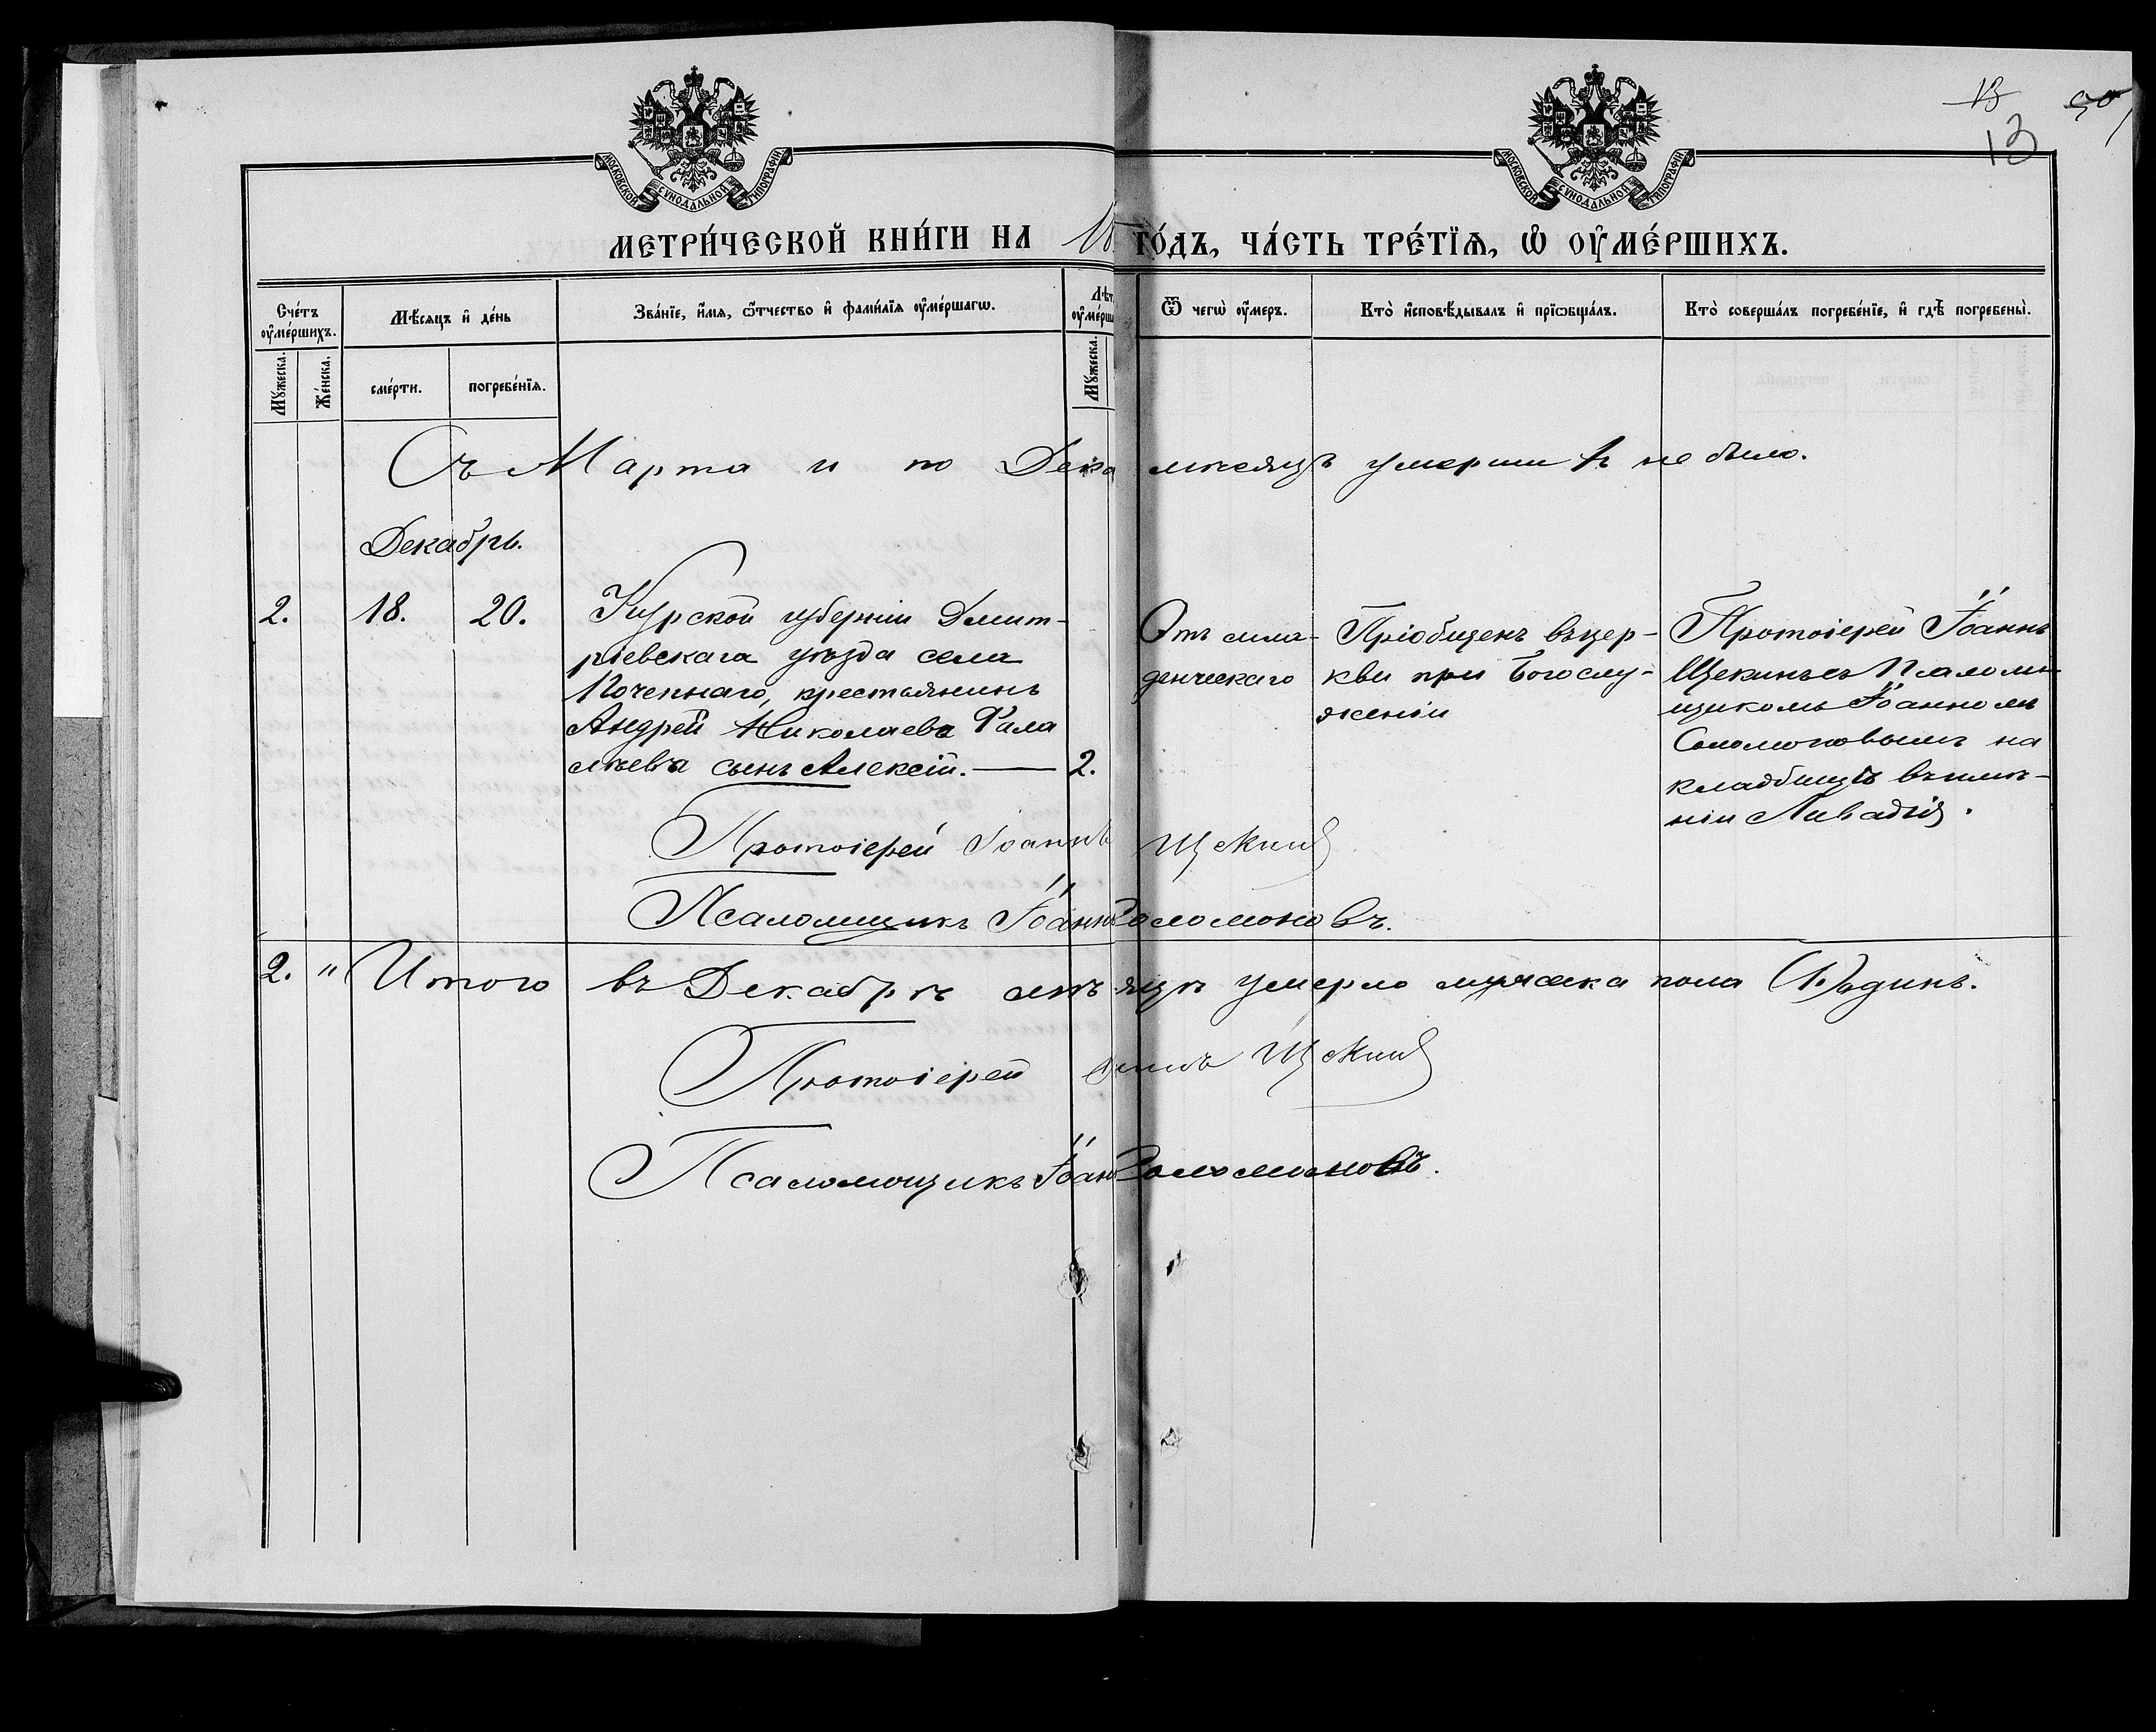 13 90
13
МОСКОВСКОЙ СѴНОДАЛЬНОЙ ТИПОГРАФІИ
МОСКОВСКОЙ СѴНОДАЛЬНОЙ ТИПОГРАФІИ
МЕТРИ́ЧЕСКОЙ КНИ́ГИ НА 18 ГО́ДЪ, ЧА́СТЬ ТРЕ́ТЇѦ, Ѡ҆ ОУ҆МЕ́РШИХЪ.
Сче́тъ оу҆ме́ршихъ.
Мꙋ́жеска.
Же́нска.
Мѣ́сяцъ и҆ де́нь
сме́рти.
погребе́нїѧ.
Зва́нїе, и҆́мѧ, ѻ҆́тчество и҆ фами́лїѧ оу҆ме́ршагѡ.
Лѣт
оу҆ме́рша
Мꙋ́жеска.
Ѿ чегѡ̀ оу҆́меръ.
Кто̀ и҆сповѣ́дывалъ и҆ прїѡбща́лъ.
Кто̀ соверша́лъ погребе́нїе, и҆ гдѣ̀ погребены̀.
Съ Марта и по Дека мѣсяцъ умершихъ не было.
Декабрь.
2. 18. 20.
Курской губерніи Дмит-
ріевскага уѣзда села
Поченнаго, крестьянинъ
Андрей Николаева Фила
сынъ Алексій. — 2.
Отъ мла-
денческаго
Пріобщенъ въ цер-
кви при Богослу-
женіи
Протоіерей Іоаннъ
Щекинъ съ Псаломъ
щикомъ Іоанномъ
Соломоновымъ на
кладбищѣ въ имѣ-
ніи Ливадія.
Протоіерей Іоаннъ Щекинъ
Псаломщикъ Іоаннъ Соломоновъ.
2. " Итого въ Декабрѣ мѣсяцѣ умерло мужеска пола (1) Одинъ.
Протоіерей Щекинъ
Псаломощикъ Іоан Соломоновъ.